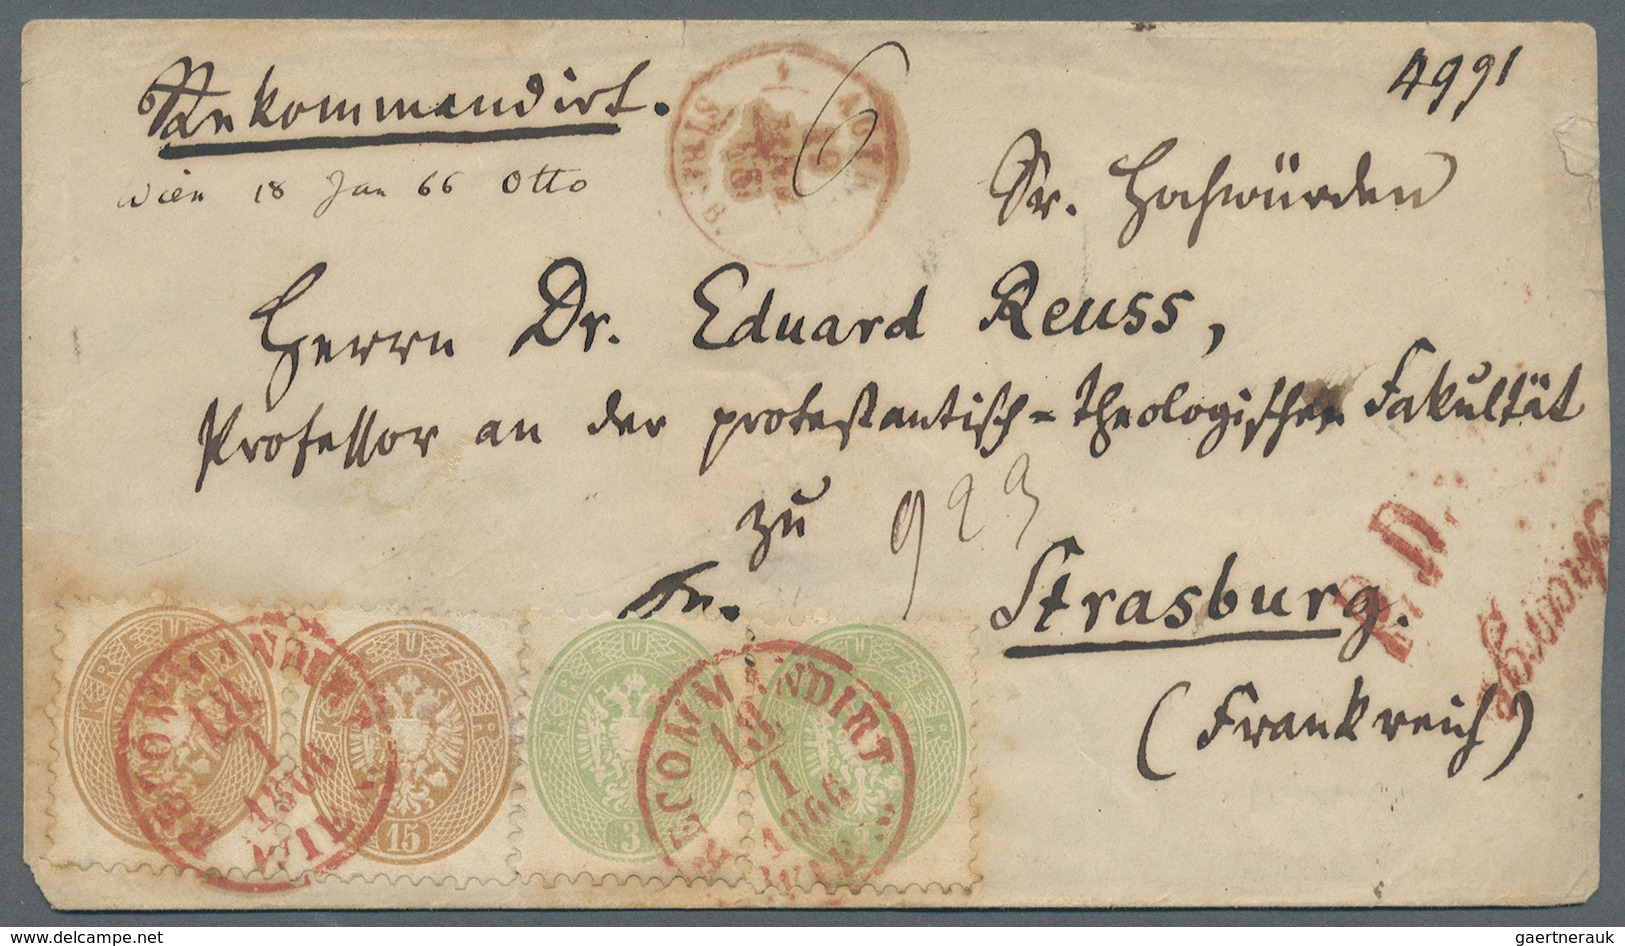 Rekommandirt.
4991
6
Wien 18 Jan 66 Otto
Sr. Hochwürden
Herrn Dr. Eduard Reuss,
Professor an der protestantisch-theologischen Fakultät
zu
923
Fr.
Strasburg.
(Frankreich)
P.D.
KREUZER
KREUZER
15
KREUZER
3
KREUZER
3
RECOMMANDIRT
18
1
1866
WIEN
RECOMMANDIRT
18
1
1866
WIEN
delcampe.net
gaertnerauk